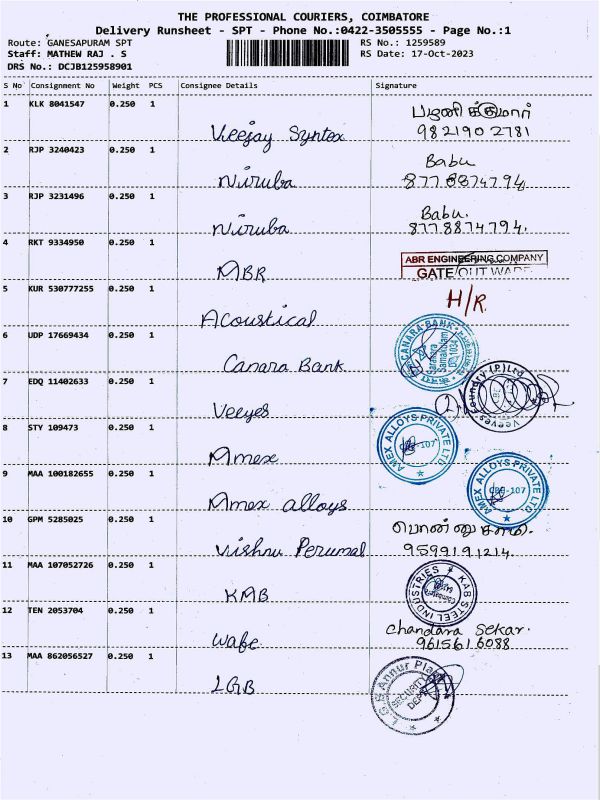 THE PROFESSIONAL COURIERS, COIMBATORE
Delivery Runsheet - SPT - Phone No.:0422-3505555 - Page No.:1
Route: GANESAPURAM SPT RS No.: 1259589
Staff: MATHEW RAJ . S RS Date: 17-Oct-2023
DRS No.: DCJB125958901
S No Consignment No Weight PCS Consignee Details Signature
1 KLK 8041547 0.250 1
பழனிக்குமார்
Veejay Syntex 9821902781
2 RJP 3240423 0.250 1
Babu
Niruba 877.8874794
3 RJP 3231496 0.250 1
Babu.
Niruba 877.8874794.
4 RKT 9334950 0.250 1
ABR ENGINEERING COMPANY
ABR GATE/OUT WARD
5 KUR 530777255 0.250 1
H/R
Acoustical
6 UDP 17669434 0.250 1
CANARA BANK
Canara Bank
7 EDQ 11402633 0.250 1
Veeyes Foundry (P) Ltd
Veeyes
8 STY 109473 0.250 1
AMEX ALLOYS PRIVATE LTD
Amex
9 MAA 100182655 0.250 1
AMEX ALLOYS PRIVATE LTD
Amex alloys
10 GPM 5285025 0.250 1
பொன்னுசாமி.
Vishnu Perumal 9599191214.
11 MAA 107052726 0.250 1
KAB STEEL INDUSTRIES
KMB
12 TEN 2053704 0.250 1
Chandara Sekar.
wabe 9615616088
13 MAA 862056527 0.250 1
L.G.B Annur Plant
SECURITY
DEPT
LGB